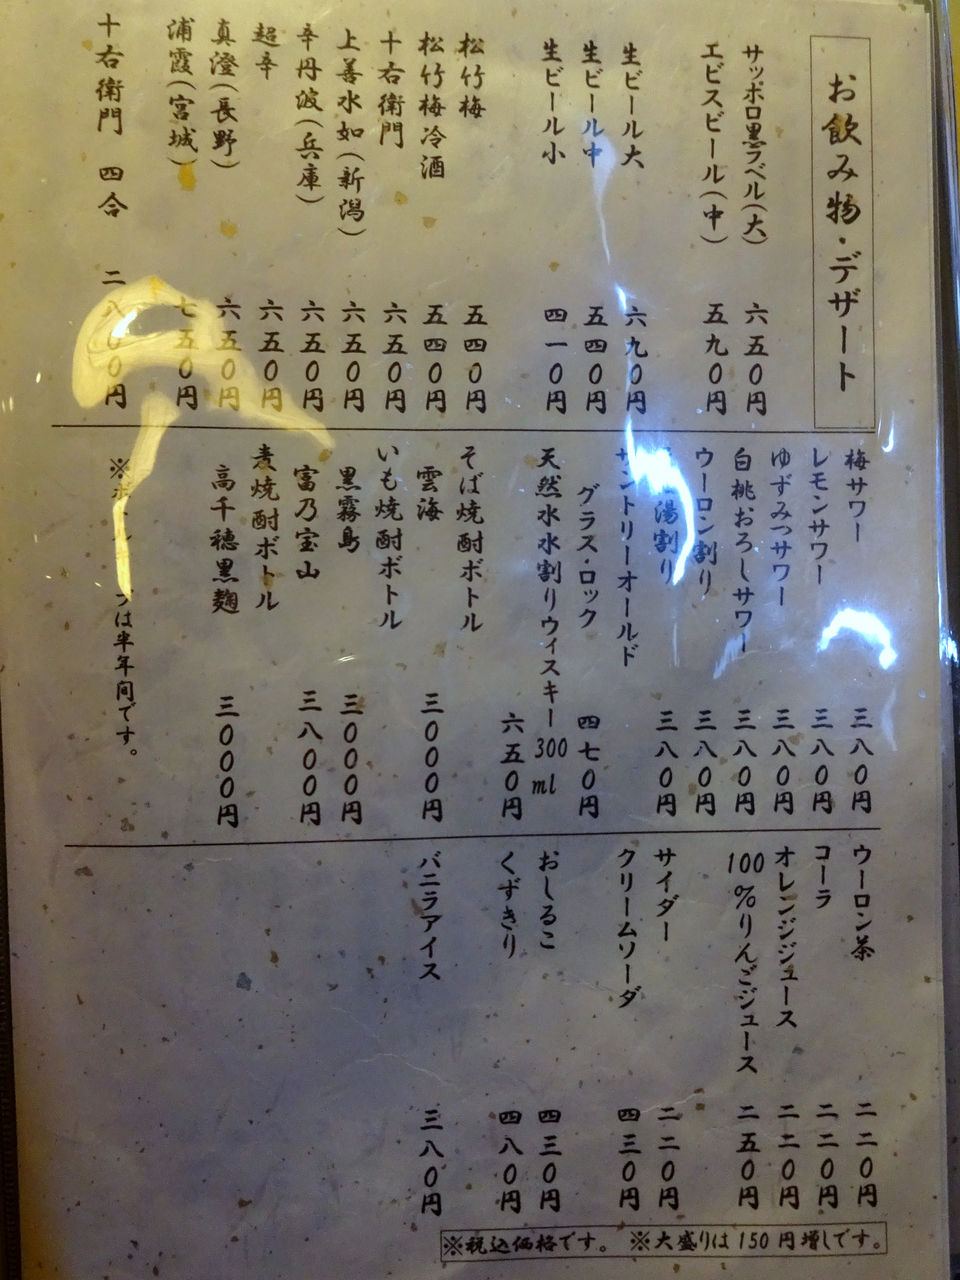 お飲み物・デザート
サッポロ黒ラベル(大) 六五〇円
エビスビール(中) 五九〇円
生ビール大 六九〇円
生ビール中 五四〇円
生ビール小 四一〇円
松竹梅 五四〇円
松竹梅冷酒 五四〇円
十右衛門 六五〇円
上善水如(新潟) 六五〇円
辛丹波(兵庫) 六五〇円
超辛 六五〇円
真澄(長野) 六五〇円
浦霞(宮城) 七五〇円
十右衛門 四合 二八〇〇円
梅サワー 三八〇円
レモンサワー 三八〇円
ゆずみつサワー 三八〇円
白桃おろしサワー 三八〇円
ウーロン割り 三八〇円
湯割り 三八〇円
サントリーオールド
グラス・ロック 四七〇円
天然水水割りウィスキー 300ml
六五〇円
そば焼酎ボトル
雲海 三〇〇〇円
いも焼酎ボトル
黒霧島 三〇〇〇円
富乃宝山 三八〇〇円
麦焼酎ボトル
高千穂黒麹 三〇〇〇円
※ は半年間です。
ウーロン茶 二二〇円
コーラ 二二〇円
オレンジジュース 二二〇円
100%りんごジュース 二五〇円
サイダー 二二〇円
クリームソーダ 四三〇円
おしるこ 四三〇円
くずきり 四八〇円
バニラアイス 三八〇円
※税込価格です。 ※大盛りは150円増しです。